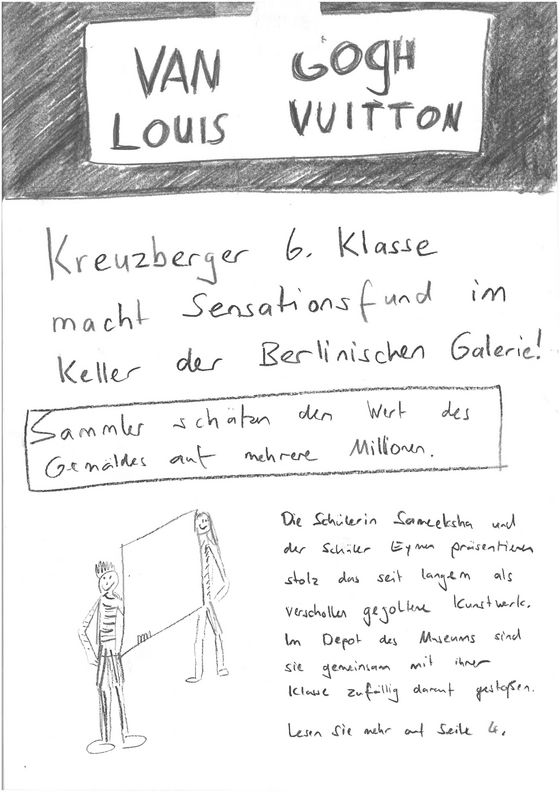 VAN GOGH
LOUIS VUITTON
Kreuzberger 6. Klasse
macht Sensationsfund im
Keller der Berlinischen Galerie!
Sammler schätzen den Wert des
Gemäldes auf mehrere Millionen.
Die Schülerin Sameeksha und
der Schüler Eymen präsentieren
stolz das seit langem als
verschollen gegoltene Kunstwerk.
Im Depot des Museums sind
sie gemeinsam mit ihrer
Klasse zufällig darauf gestoßen.
Lesen Sie mehr auf Seite 4.